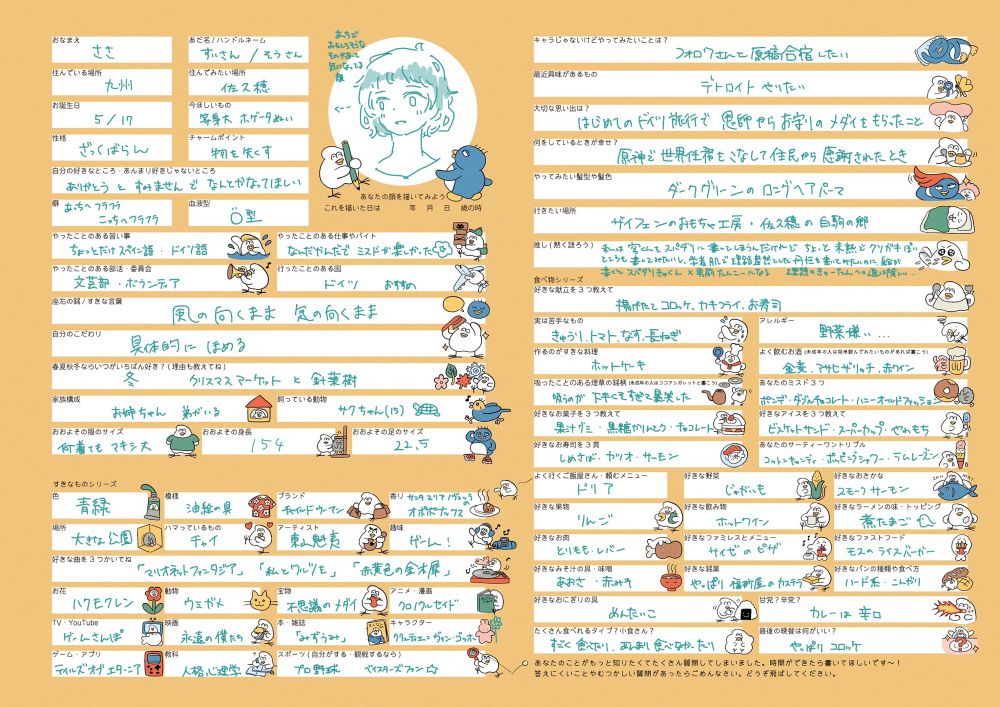 おなまえ
ささ
あだ名/ハンドルネーム
すいさん / そうさん
あっちで
おもしろそうな
ものがあって
気になってる
顔
住んでいる場所
九州
住んでみたい場所
佐久穂
お誕生日
5/17
今ほしいもの
等身大 ホゲータぬい
性格
ざっくばらん
チャームポイント
物を失くす
自分の好きなところ・あんまり好きじゃないところ
ありがとう と すみません で なんとかなってほしい
癖
あっちへフラフラ
こっちへフラフラ
血液型
O型
あなたの顔を描いてみよう
これを描いた日は 年 月 日 歳の時
やったことのある習い事
ちょっとだけスペイン語・ドイツ語
やったことのある仕事やバイト
なんだかんだで ミスドが楽しかった
やったことのある部活・委員会
文芸部・ボランティア
行ったことのある国
ドイツ おすすめ
座右の銘/すきな言葉
風の向くまま 気の向くまま
自分のこだわり
具体的に ほめる
春夏秋冬ならいつがいちばん好き?(理由も教えてね)
冬 クリスマスマーケット と 針葉樹
家族構成
お姉ちゃん 弟がいる
飼っている動物
サクちゃん(15)
おおよその服のサイズ
何着ても マキシ丈
おおよその身長
154
おおよその足のサイズ
22.5
すきなものシリーズ
色
青緑
模様
油絵の具
ブランド
チャイルドウーマン
香り
サンタ マリア ノヴェッラの
オポポナックス
場所
大きな公園
ハマっているもの
チャイ
アーティスト
東山魁夷
趣味
ゲーム!
好きな曲を3つかいてね
「マリオネットファンタジア」 「私とワルツを」 「赤葉色の金木犀」
お花
ハクモクレン
動物
ウミガメ
宝物
不思議のメダイ
アニメ・漫画
クロノクルセイド
TV・YouTube
ゲームさんぽ
映画
永遠の僕たち
本・雑誌
「みずうみ」
キャラクター
クルーティエ=ヴァン・ゴッホ
ゲーム・アプリ
テイルズ オブ エターニア
教科
人格心理学
スポーツ(自分がする・観戦するなら)
プロ野球 ベイスターズファン☆
キャラじゃないけどやってみたいことは?
フォロワさんと原稿合宿したい
最近興味があるもの
デトロイト やりたい
大切な思い出は?
はじめてのドイツ旅行で 恩師からお守りのメダイをもらったこと
何をしているときが幸せ?
原神で世界任務をこなして住民から感謝されたとき
やってみたい髪型や髪色
ダークグリーンの ロングヘアパーマ
行きたい場所
ザイフェンのおもちゃ工房・佐久穂の白駒の郷
推し(熱く語ろう)
食べ物シリーズ
好きな献立を3つ教えて
揚げたてコロッケ、カキフライ、お寿司
実は苦手なもの
きゅうり、トマト、なす、長ねぎ
アレルギー
野菜嫌い…
作るのがすきな料理
ホットケーキ
よく飲むお酒(未成年の人は将来飲んでみたいものがあれば書こう)
金麦、アサヒザリッチ、赤ワイン
吸ったことのある煙草の銘柄(未成年の人はココアシガレットと書こう)
吸うのが 下手くそすぎて爆笑した
あなたのミスド3つ
ポンデ・ダブルチョコレート・ハニーオールドファッション
好きなお菓子を3つ教えて
果汁グミ・黒糖かりんとう・チョコレート
好きなアイスを3つ教えて
ビスケットサンド・スーパーカップ・やわもち
好きなお寿司を3貫
しめさば・カツオ・サーモン
あなたのサーティーワントリプル
コットンキャンディ・ポッピングシャワー・ラムレーズン
よく行くご飯屋さん・頼むメニュー
ドリア
好きな野菜
じゃがいも
好きなおさかな
スモークサーモン
好きな果物
りんご
好きな飲み物
ホットワイン
好きなラーメンの味・トッピング
煮たまご
好きなお肉
とりもも・レバー
好きなファミレスとメニュー
サイゼのピザ
好きなファストフード
モスのライスバーガー
好きなみそ汁の具・味噌
あおさ・赤みそ
好きな銘菓
やっぱり 福砂屋のカステラ
好きなパンの種類や食べ方
ハード系・こんがり
好きなおにぎりの具
めんたいこ
甘党?辛党?
カレーは 辛口
たくさん食べれるタイプ?小食さん?
すごく食べたり、あんまり食べなかったり
最後の晩餐は何がいい?
やっぱり コロッケ
あなたのことがもっと知りたくてたくさん質問してしまいました。時間ができたら書いてほしいです〜!
答えにくいことやむつかしい質問があったらごめんなさい。どうぞ飛ばしてください。